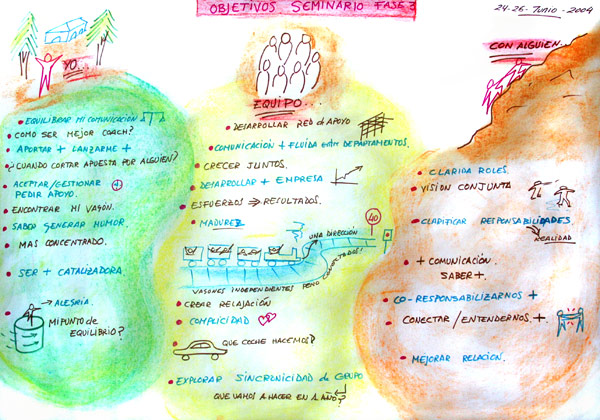 OBJETIVOS SEMINARIO FASE 3
24-26-JUNIO-2009
YO...
EQUILIBRAR MI COMUNICACIÓN
COMO SER MEJOR COACH?
APORTAR + LANZARME +
¿CUANDO CORTAR APUESTA POR ALGUIEN?
ACEPTAR/GESTIONAR
PEDIR APOYO.
ENCONTRAR MI VAGÓN.
SABER GENERAR HUMOR.
MAS CONCENTRADO.
SER + CATALIZADORA
→ ALEGRIA.
MI PUNTO de
EQUILIBRIO?
EQUIPO...
DESARROLLAR RED de APOYO
COMUNICACIÓN + FLUIDA entre DEPARTAMENTOS.
CRECER JUNTOS.
DESARROLLAR + EMPRESA
ESFUERZOS ⇒ RESULTADOS.
MADUREZ
40
UNA DIRECCIÓN
VAGONES INDEPENDIENTES PERO CONECTADOS!
CREAR RELAJACIÓN
COMPLICIDAD
QUE COCHE HACEMOS?
EXPLORAR SINCRONICIDAD de GRUPO
QUE VAMOS A HACER EN 1 AÑO?
CON ALGUIEN...
CLARIDA ROLES.
VISIÓN CONJUNTA
CLARIFICAR RESPONSABILIDADES
REALIDAD
+ COMUNICACIÓN.
SABER +.
CO-RESPONSABILIZARNOS +
CONECTAR/ENTENDERNOS. +
MEJORAR RELACION.